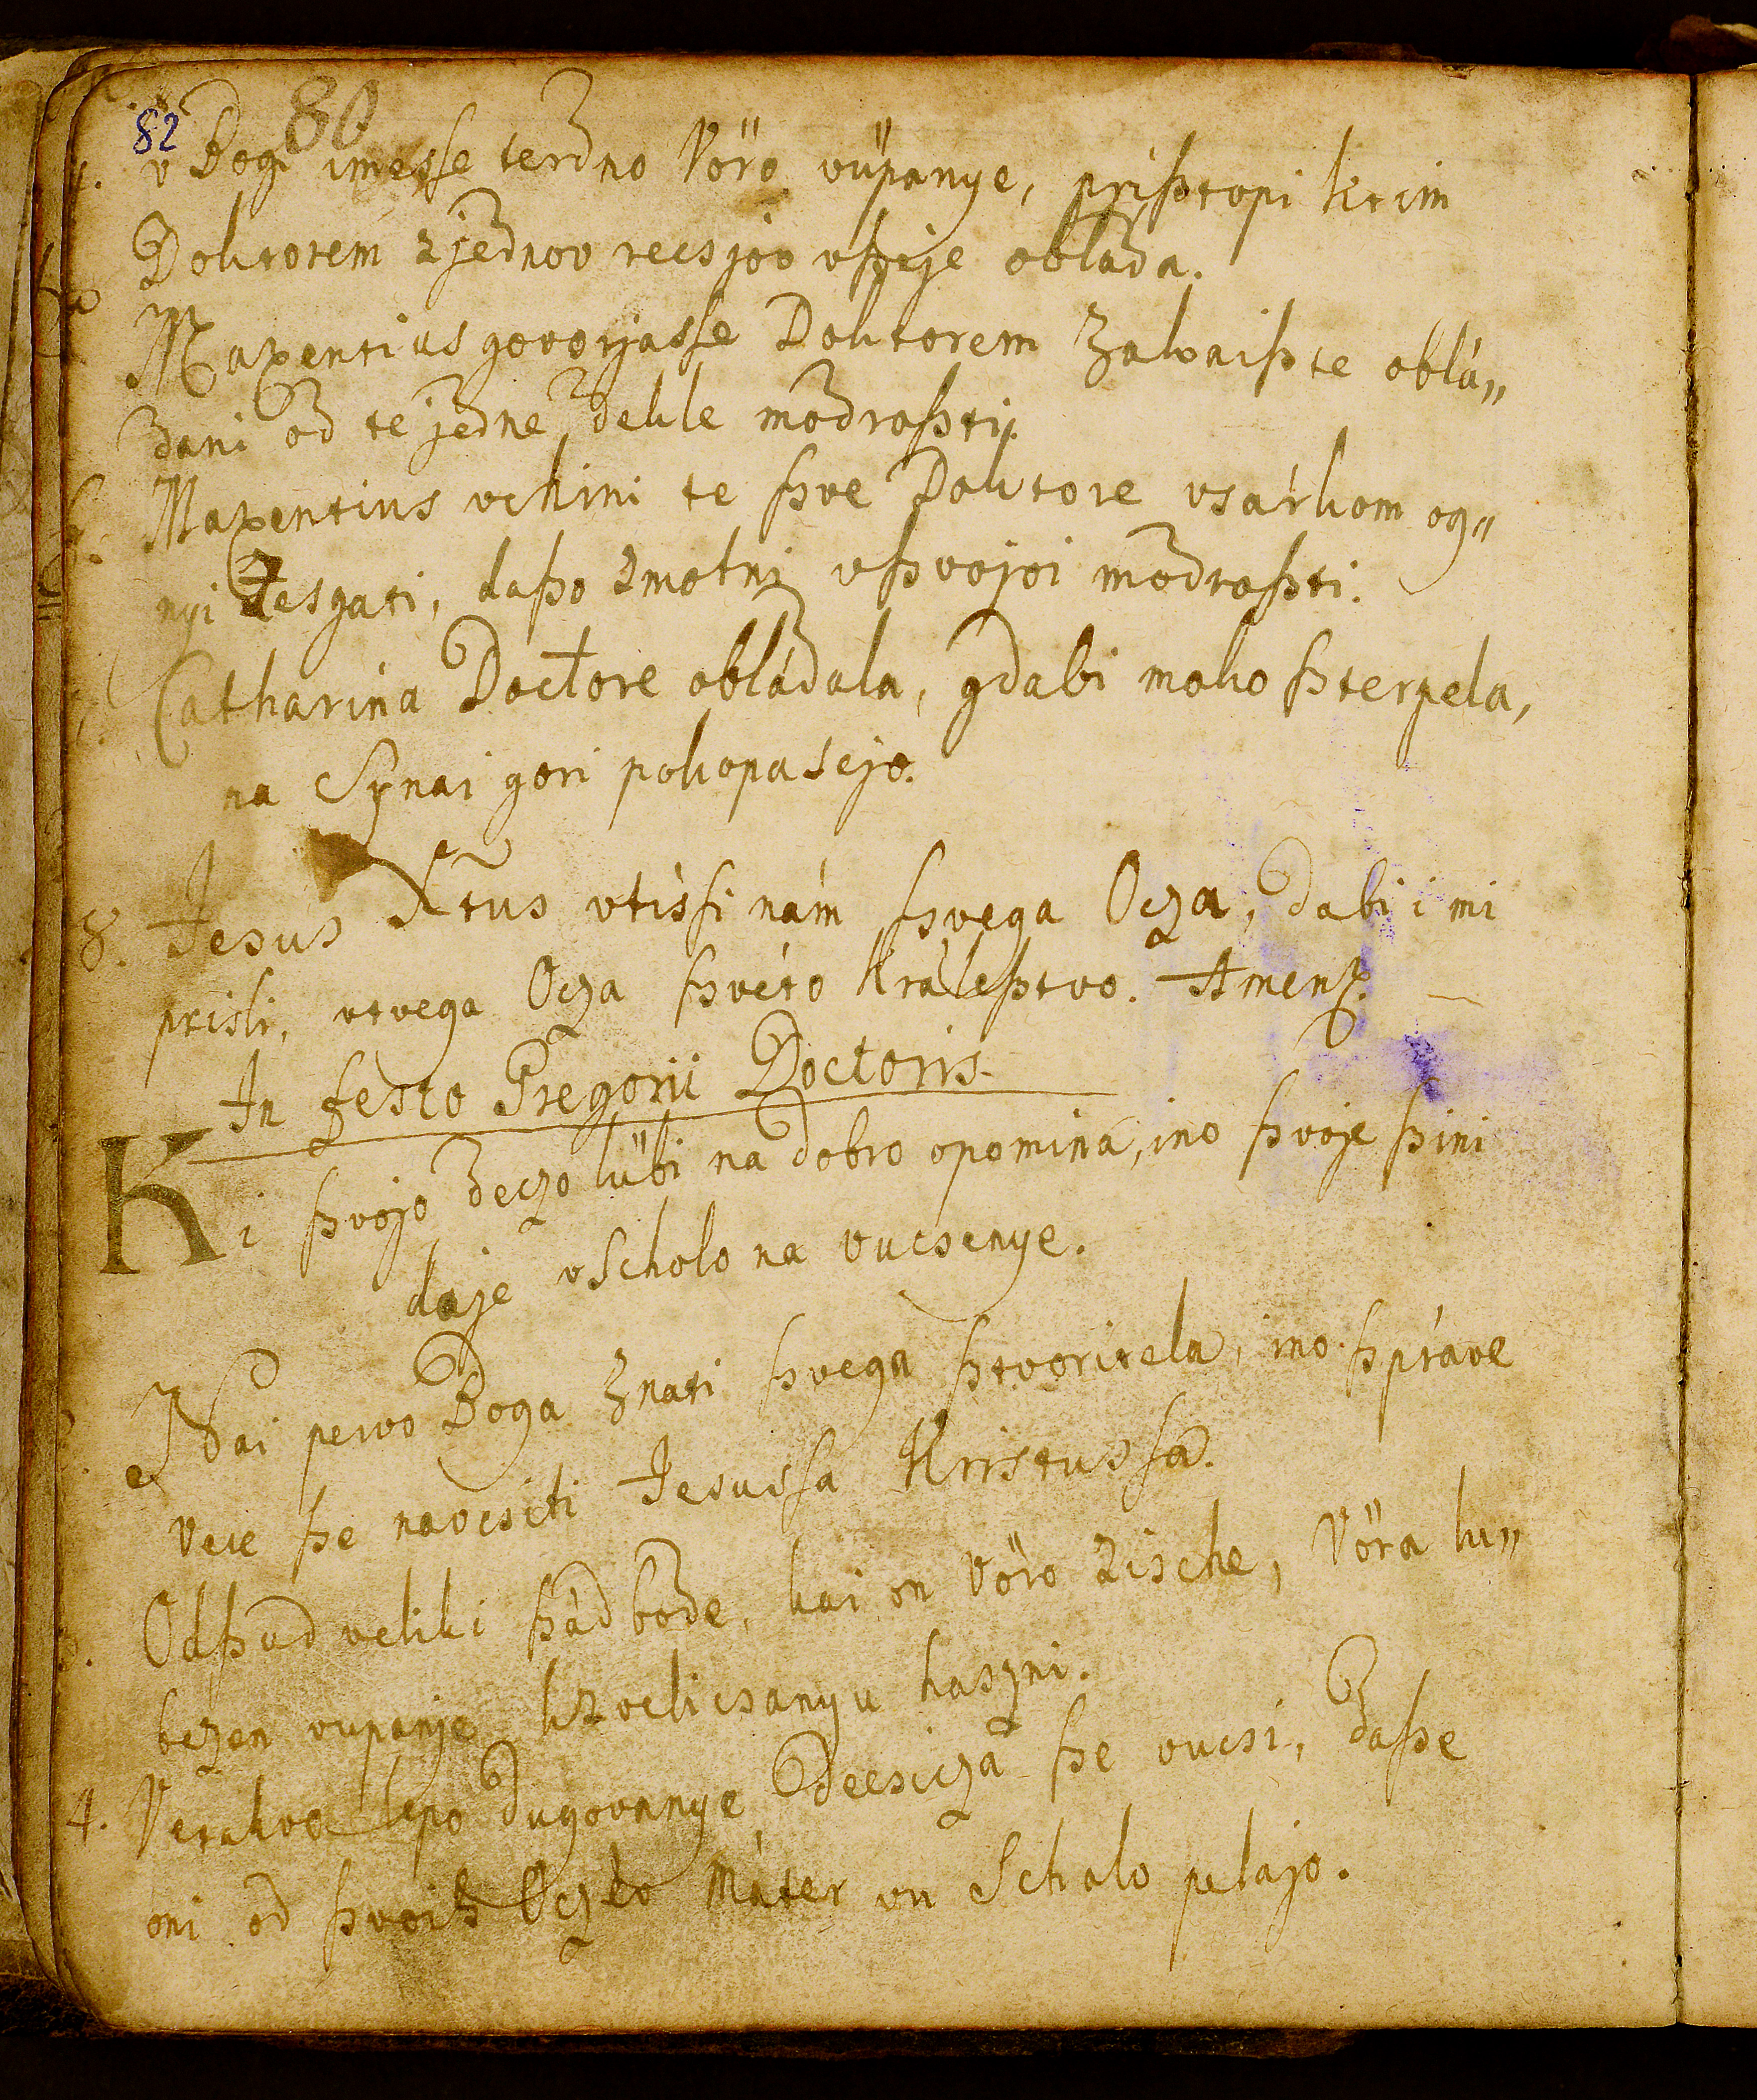 82 80
4. v Bogi imesse terdno Vöro vüpanye, prißtopi ktim
Doktorem zjednov recsjov vßeje oblada.
Maxentius govorjasse Doktorem Zakaißte oblá„
dani od te jedne dekle modroßti.
Maxentius vchini te ßve Doktore vsárkom og„
nyi sesgati, daßo zmotni vßvojoi modroßti.
Catharina Doctore obládala, gdabi moko ßterpela,
na Sÿnai gori pokopaseje.
8. Jesus Xtus vtissi nám ßvega Ocza, dabi i mi
prisli, vtvega Ocza ßvéto Králeßtvo. Amen.
In festo Gregorii Doctoris
Ki ßvojo deczo lübi na dobro opominá, ino ßvoje ßini
daje vScholo na vucsenye.
Nai pervo Boga Znati ßvega ßtvoritela, ino ßpráve
Vere ße navcsiti Jesussa Kristussa.
3. Odßud veliki ßád bode, kai on Vöro zische, Vöra lu„
bezen vupanje kzvelicsanyu haszni.
4. Vetakvo lepo dugovanye Decsicza ße vucsi, daße
oni od ßvoih Oczko Máter vu Scholo pelajo.